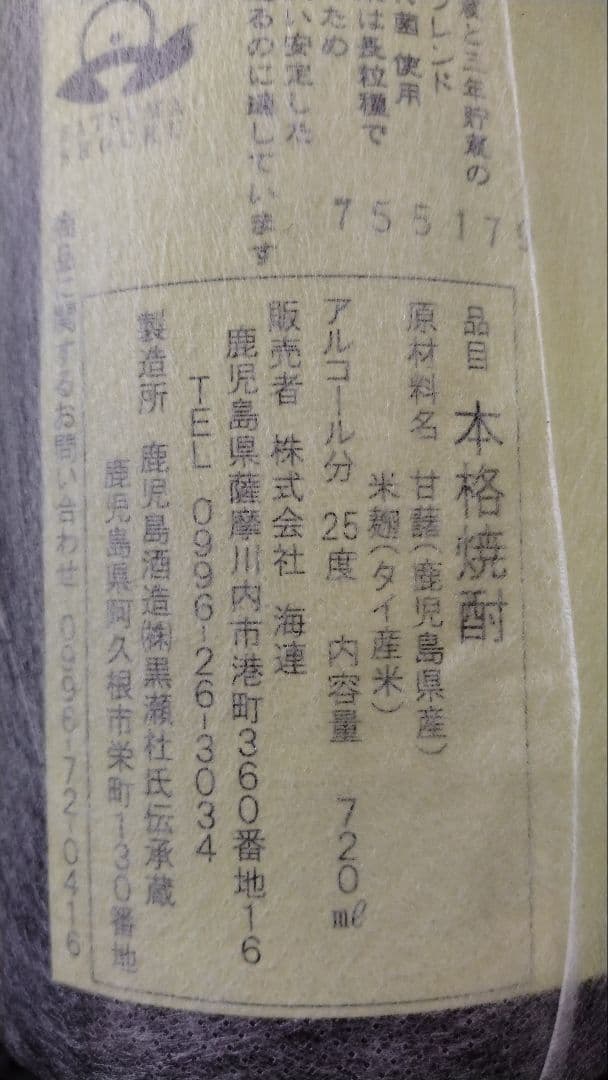 と三年貯蔵の
ブレンド
菌 使用
は長粒種で
ため
い安定した
るのに適しています
755179
品目 本格焼酎
原材料名 甘藷(鹿児島県産)
米麹(タイ産米)
アルコール分 25度 内容量 720ml
販売者 株式会社 海連
鹿児島県薩摩川内市港町360番地16
TEL 0996-26-3034
製造所 鹿児島酒造㈱黒瀬杜氏伝承蔵
鹿児島県阿久根市栄町130番地
商品に関するお問い合わせ 0996-72-0416
SATSUMA
SHOCHU